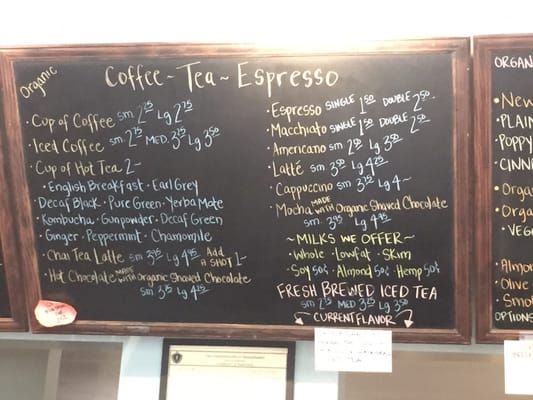 Organic
Coffee ~ Tea ~ Espresso
· Cup of Coffee sm 2²⁵ Lg 2⁷⁵
· Iced Coffee sm 2⁷⁵ MED. 3²⁵ Lg 3⁵⁰
· Cup of Hot Tea 2-
· English Breakfast · Earl Grey
Decaf Black · Pure Green · Yerba Mate
· Kombucha · Gunpowder · Decaf Green
· Ginger · Peppermint · Chamomile
· Chai Tea Latte sm 3⁹⁵ Lg 4⁹⁵ Add A SHOT 1-
· Hot Chocolate MADE WITH Organic Shaved Chocolate
sm 3⁹⁵ Lg 4²⁵
· Espresso SINGLE 1⁵⁰ DOUBLE 2⁵⁰
· Macchiato SINGLE 1⁵⁰ DOUBLE 2⁵⁰
· Americano sm 2⁵⁰ Lg 3⁵⁰
· Latté sm 3⁵⁰ Lg 4²⁵
· Cappuccino sm 3²⁵ Lg 4-
· Mocha MADE WITH Organic Shaved Chocolate
sm 3⁹⁵ Lg 4⁹⁵
~ MILKS WE OFFER ~
· Whole · Lowfat · Skim
· Soy 50¢ · Almond 50¢ · Hemp 50¢
FRESH BREWED ICED TEA
sm 2⁷⁵ MED 3²⁵ Lg 3⁵⁰
CURRENT FLAVOR
ORGAN
· New
· PLAIN
POPPY
· CINN
· Orga
· Orga
· VEG
· Almo
· Olive
· Smo
OPTIONS